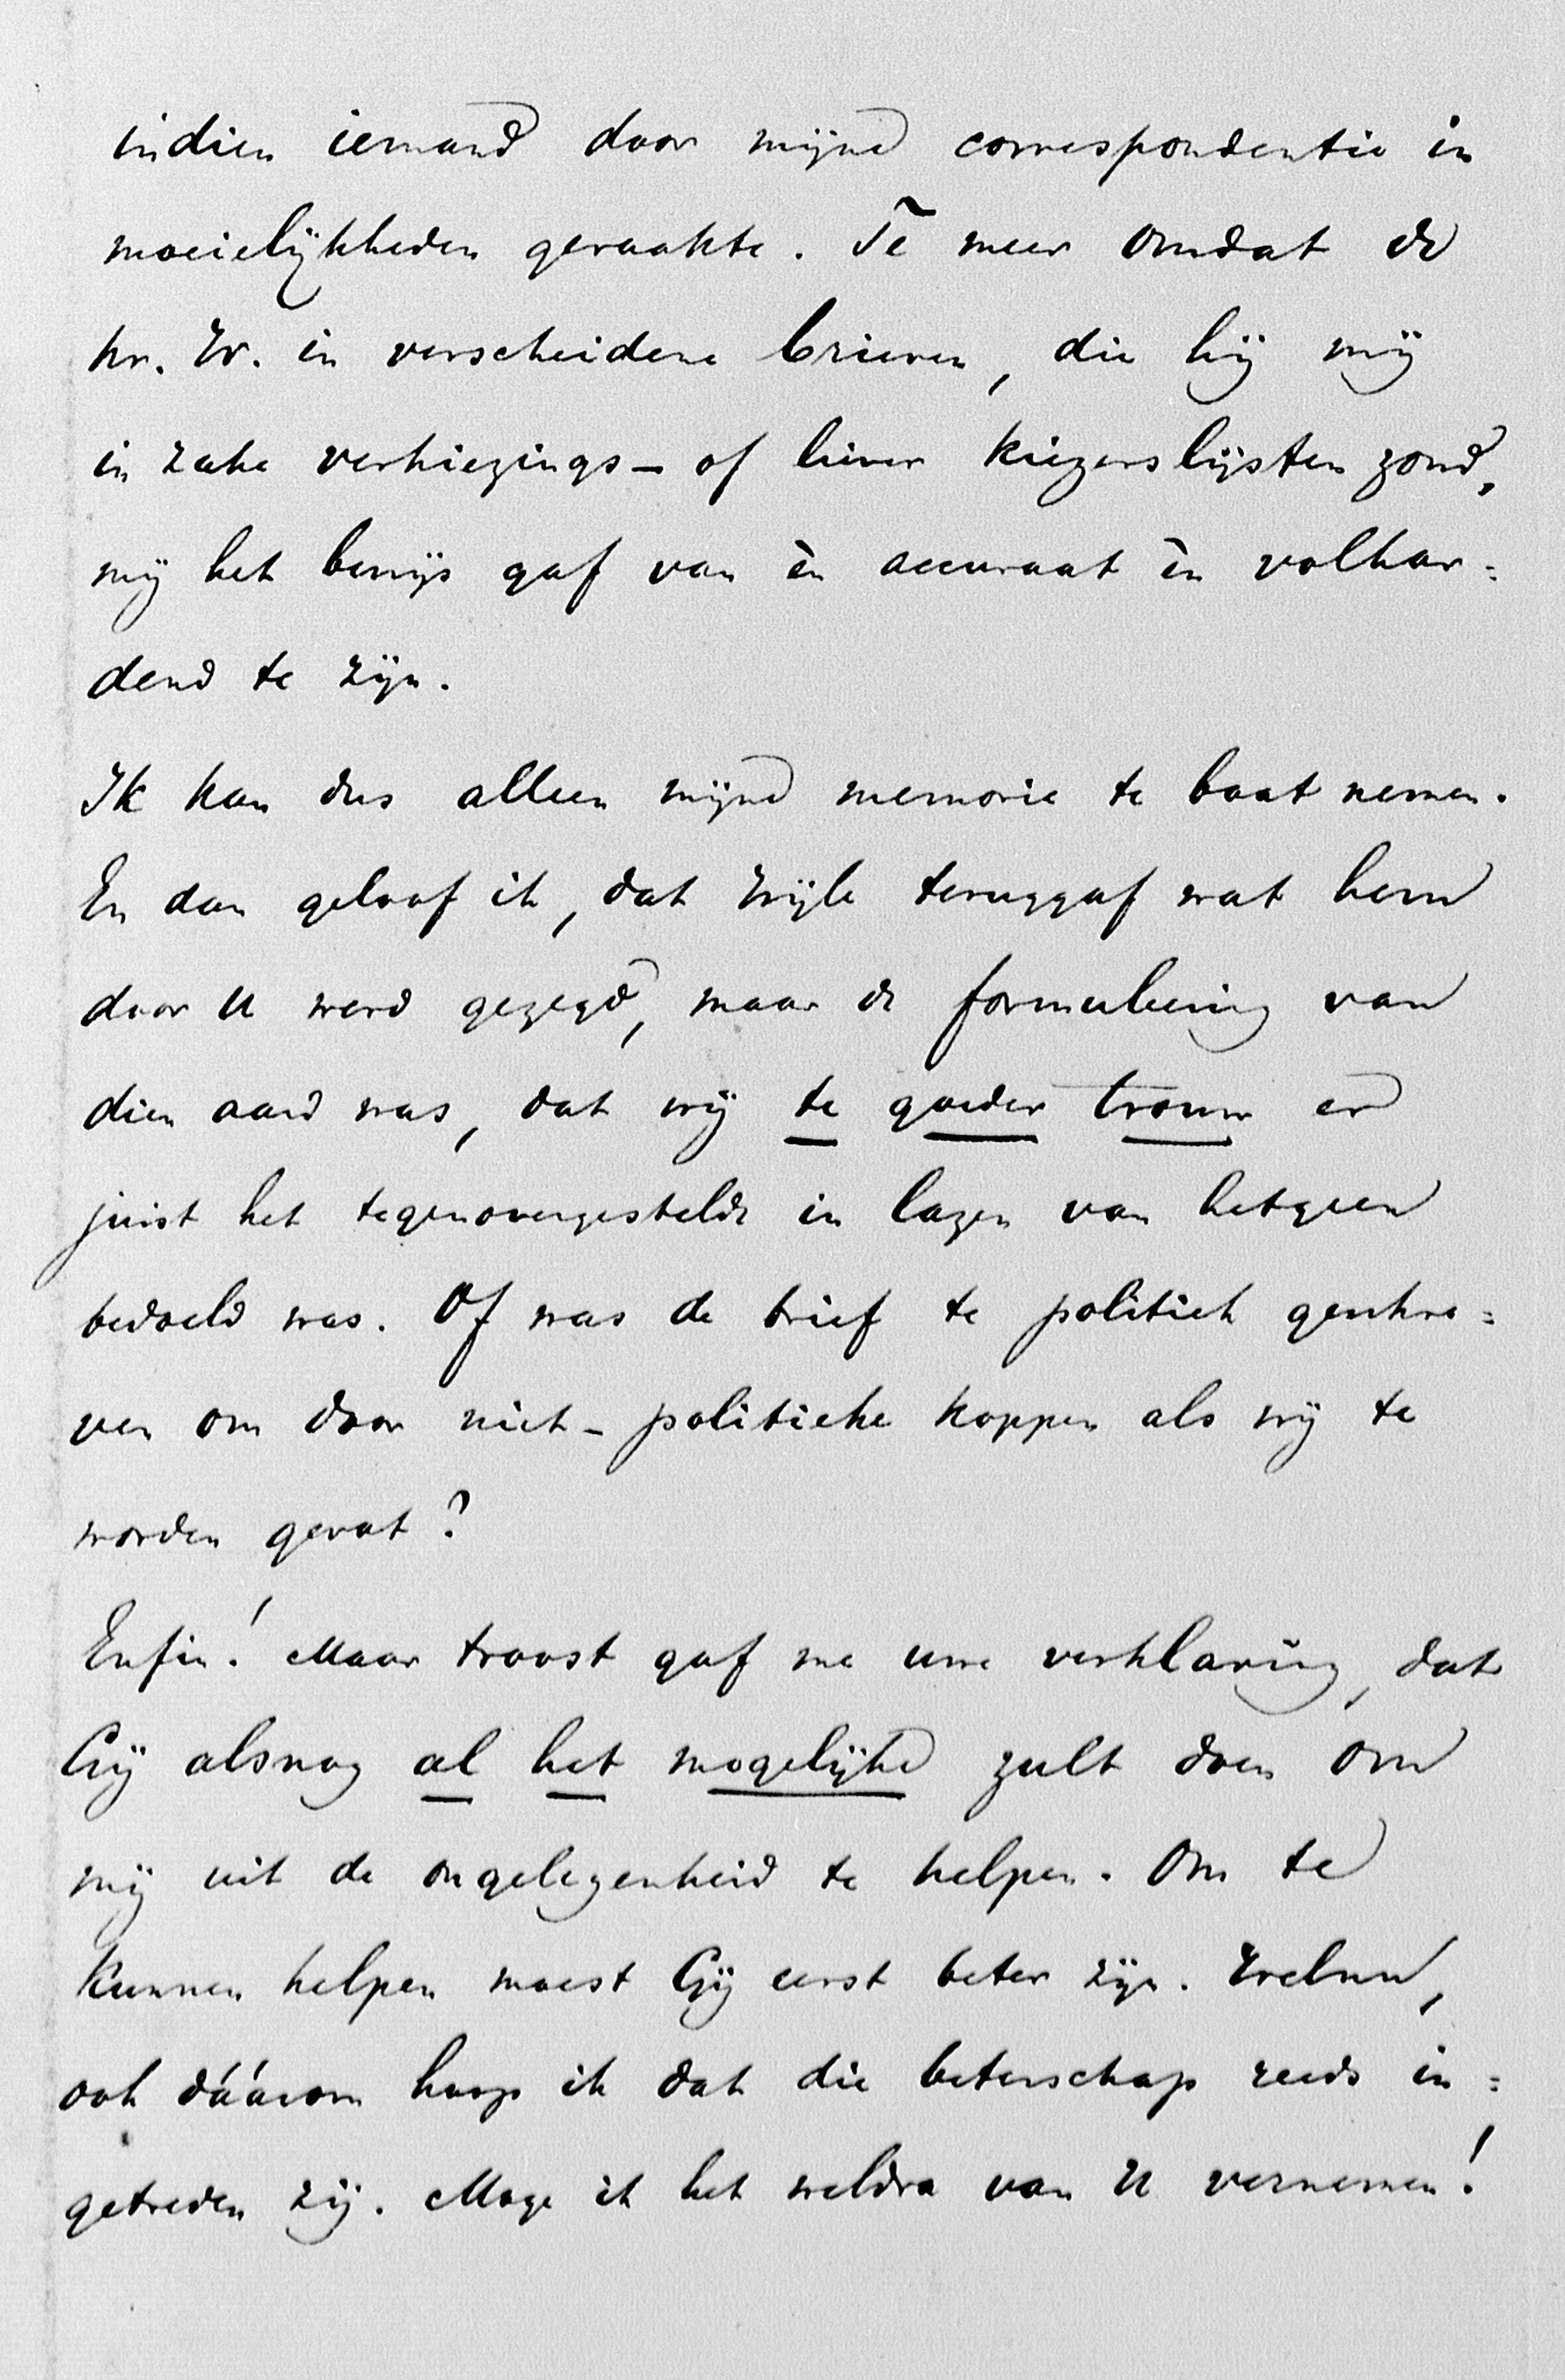 indien iemand door mijne correspondentie in
moeielijkheden geraakte. Te meer omdat de
hr. W. in verscheidene brieven, die hij mij
in zake verkiezings- of liever kiezerslijsten zond,
mij het bewijs gaf van èn accuraat èn volhar=
dend te zijn.
Ik kan dus alleen mijne memorie te baat nemen.
En dan geloof ik, dat Wijle teruggaf wat hem
door U werd gezegd, maar de formuleering van
dien aard was, dat wij te goeder trouw er
juist het tegenovergestelde in lazen van hetgeen
bedoeld was. Of was de brief te politiek geschre=
ven om door niet-politieke koppen als wij te
worden gevat?
Enfin! Maar troost gaf me uwe verklaring, dat
Gij alsnog al het mogelijke zult doen om
mij uit de ongelegenheid te helpen. Om te
kunnen helpen moest Gij eerst beter zijn. Welnu,
ook dáárom hoop ik dat die beterschap reeds in=
getreden zij. Moge ik het weldra van U vernemen!